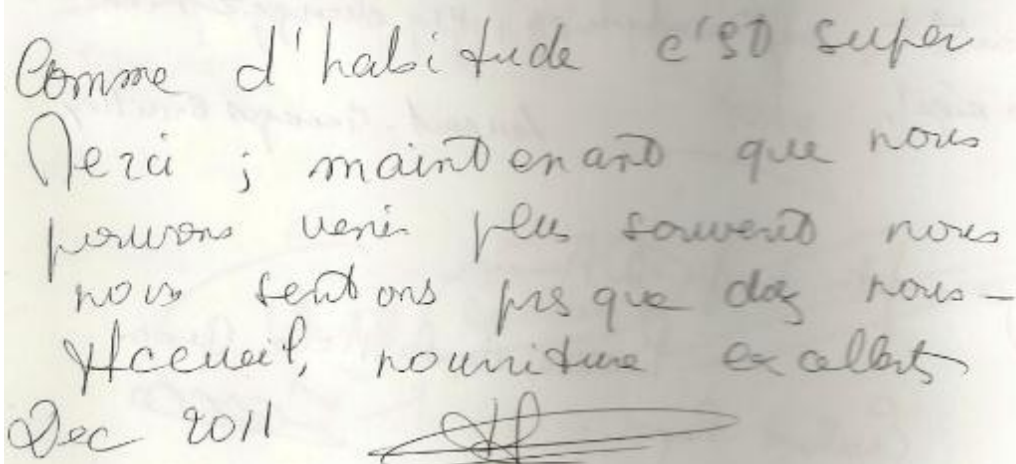 Comme d'habitude c'est super
Merci ; maintenant que nous
pouvons venir plus souvent nous
nous sentons presque chez nous -
Accueil, nourriture excellents
Dec 2011